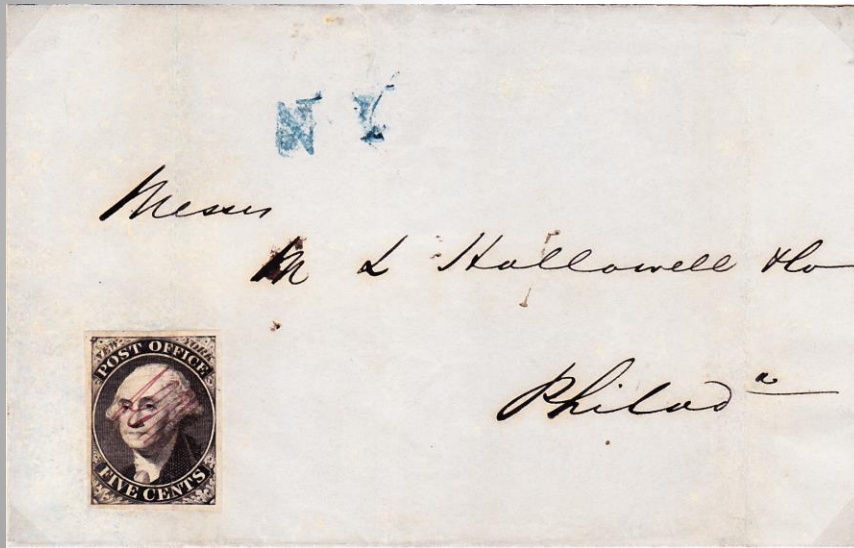 N Y
Messrs
M L Hallowell & Co
Philada
NEW-YORK
POST OFFICE
FIVE CENTS